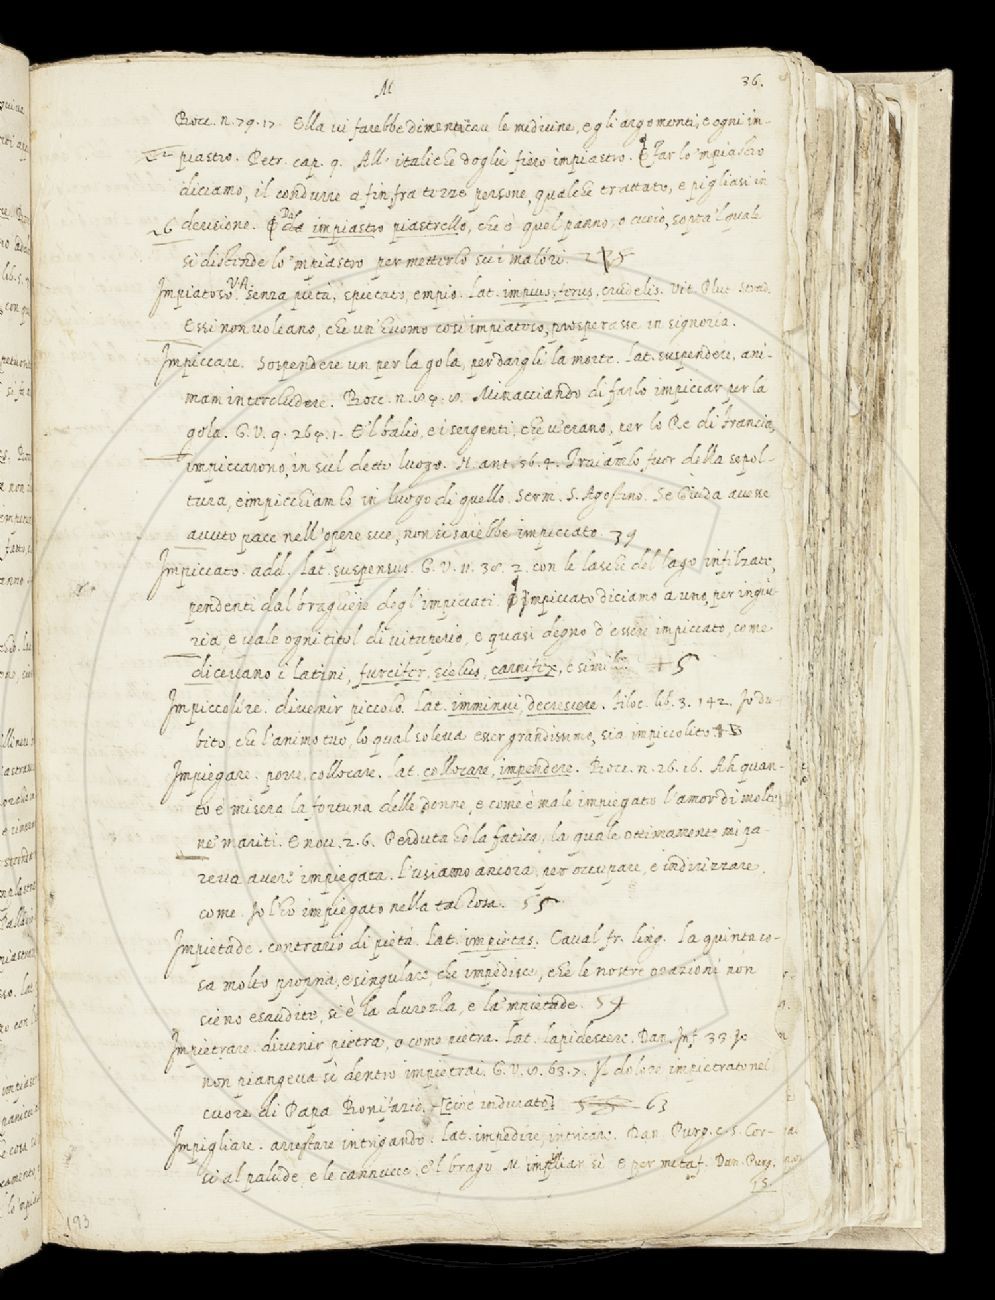 M
36.
Bocc. n. 79. 17. Ella vi farebbe dimenticare le medicine, e gli argomenti, e ogni im-
piastro. Petr. cap. 9. All' italiche doglie fiero impiastro. Far lo 'mpiastro
diciamo, il condurre a fin, fra terze persone, qualche trattato, e pigliasi in
26 decisione. Da impiastro piastrello, che è quel panno, o cuoio, sopra 'l quale
si distende lo 'mpiastro per metterlo su i malori. 25
Impiatoso VA senza pietà, spietato, empio. Lat. impius, ferus, crudelis. Vit. Plut.
Essi non voleano, che un' huomo così impiatoso, prosperasse in signoria.
Impiccare. Sospendere un per la gola, per dargli la morte. Lat. suspendere, ani-
mam intercludere. Bocc. n. Minacciando di farlo impiccar per la
gola. G. V. 9. E 'l balio, e i sergenti, che v' erano, per lo Re di Francia,
impiccarono, in sul detto luogo. M. ant. 36. 4. Traiamlo fuor della sepol-
tura, e impicchiamlo in luogo di quello. Serm. S. Agostino. Se Giuda avesse
avuto pace nell' opere sue, non si sarebbe impiccato. 39
Impiccato. add. Lat. suspensus. G. V. 11. 38. 2. con le lasche del lago infilzate,
pendenti dal braghiere degl' impiccati. Impiccato diciamo a uno, per ingiu-
ria, e vale ogni titol di vituperio, e quasi degno d' essere impiccato, come
dicevano i Latini, furcifer, scelus, carnifex, e simili. 5
Impiccolire. divenir piccolo. Lat. imminui, decrescere. Filoc. lib. 3. 142. Io du-
bito, che l' animo tuo, lo qual soleva esser grandissimo, sia impiccolito
Impiegare. porre, collocare. Lat. collocare, impendere. Bocc. n. 26. 16. Ah quan-
to è misera la fortuna delle donne, e come è male impiegato l' amor di molte
ne' mariti. E nov. 2. 6. Perduta ho la fatica, la quale ottimamente mi pa-
reva avere impiegata. L' usiamo ancora, per occupare, e indirizzare,
come. Io l' ho impiegato nella tal cosa. 55
Impietade. contrario di pietà. Lat. impietas. Caval. fr. ling. La quinta co-
sa molto propria, e singulare, che impedisce, che le nostre orazioni non
sieno esaudite, si è la durezza, e la 'mpietade. 54
Impietrare. divenir pietra, o come pietra. Lat. lapidescere. Dan. Inf. 33 Io
non piangeva sì dentro impietrai. G. V. 8. 63. 7. Il dolore impietrato nel
cuore di Papa Bonifazio. [cioè indurato] 63
Impigliare. arrestare intrigando. Lat. impedire, intricare. Dan. Purg. c. 5. Cor-
si al palude, e le cannucce, e 'l brago M' impigliar sì E per metaf. Dan. Purg.
15.
193